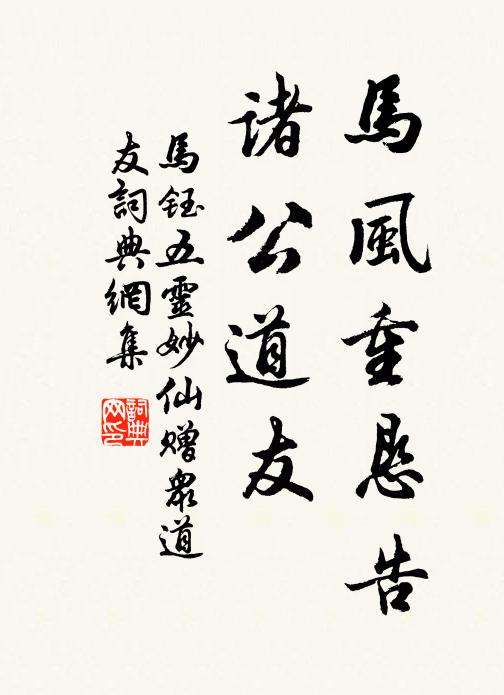 馬風重恳告
諸公道友
馬鈺五靈妙仙贈衆道
友詞典網集
詞典网印